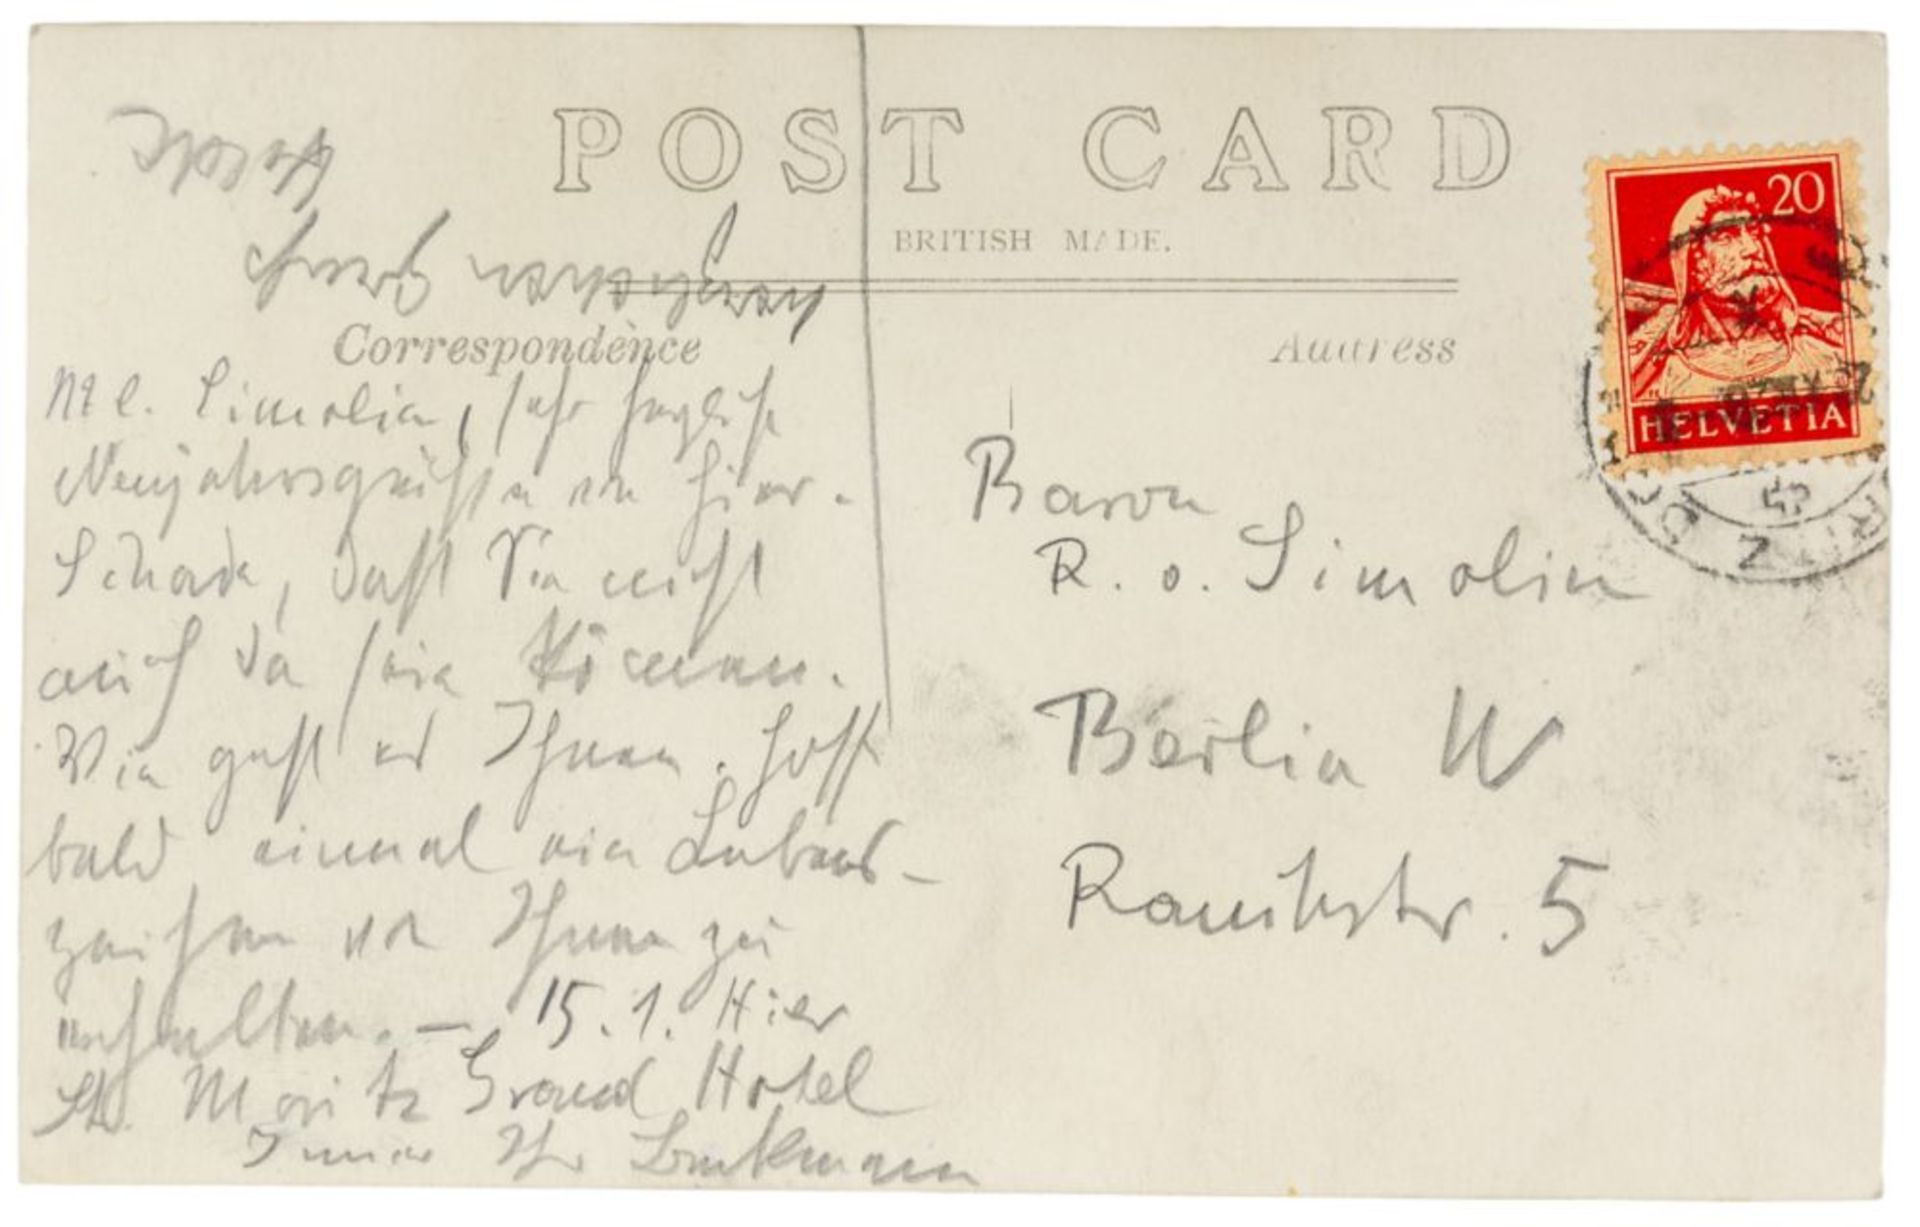 POST CARD
BRITISH MADE.
Correspondence
Address
20
HELVETIA
M l. Simolin, sehr herzliche
Neujahrsgrüße von hier.
Schade, daß Sie nicht
auch da sein können.
Wie geht es Ihnen. Hoffe
bald einmal ein Lebens-
zeichen von Ihnen zu
erhalten. – 15.1. Hier
St. Moritz Grand Hotel
Immer Ihr Beckmann
Baron
R. v. Simolin
Berlin W
Rauchstr. 5